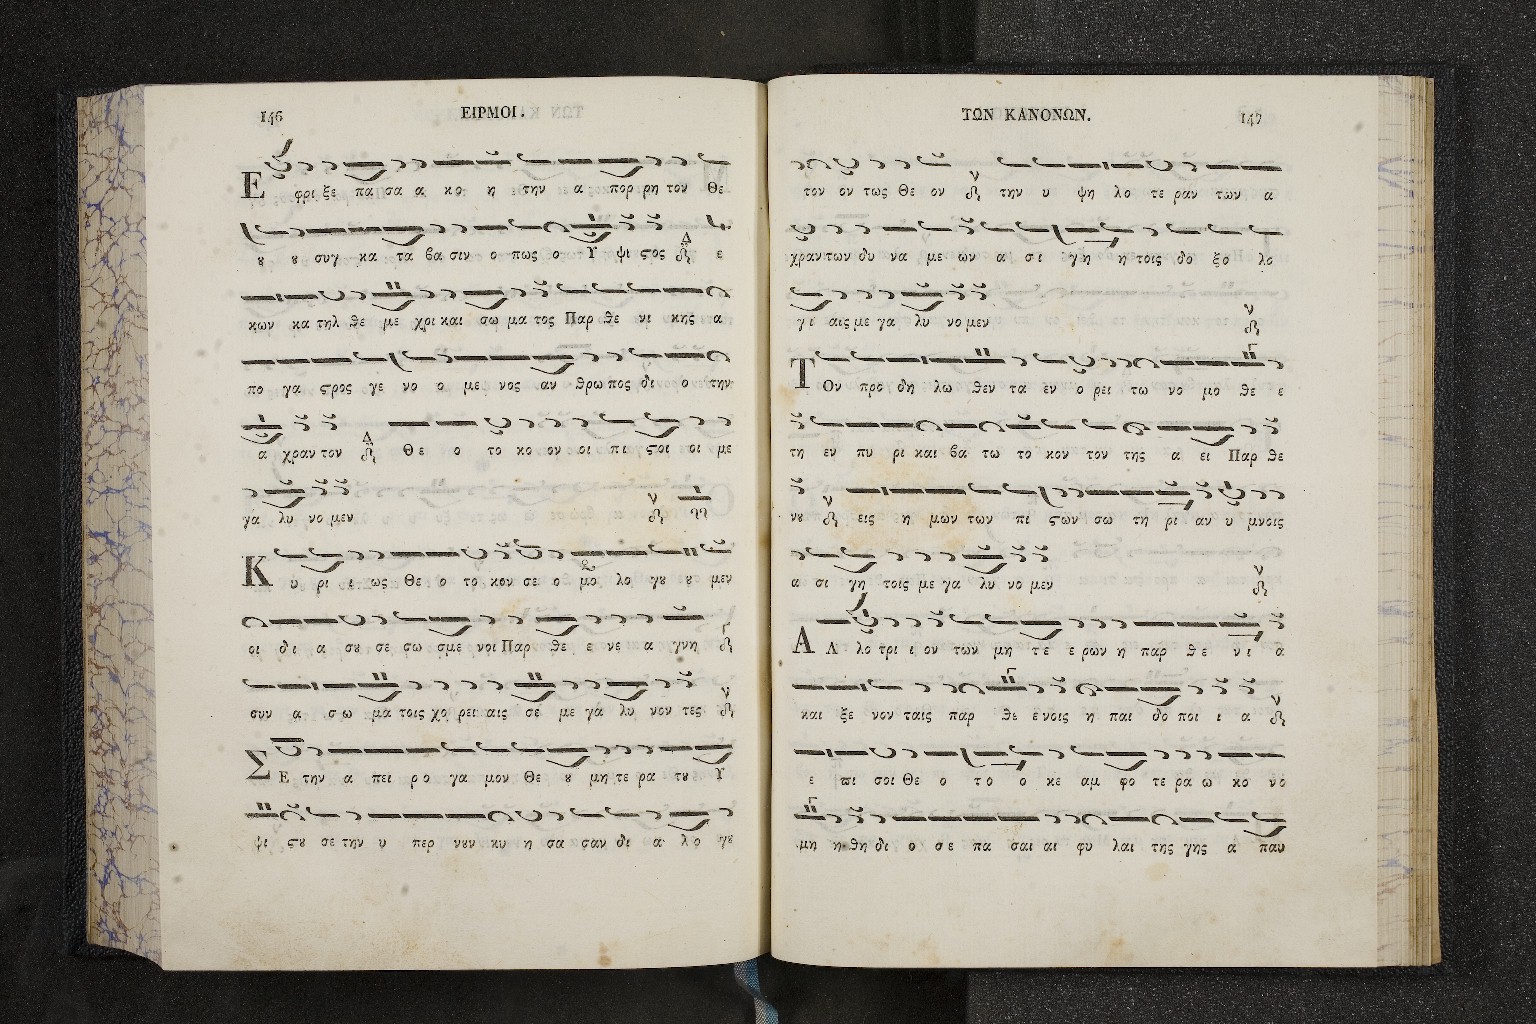 146
ΕΙΡΜΟΙ.
Ε φρι ξε πα σα α κο η την α πορ ρη τον Θε
ȣ ȣ συγ κα τα βα σιν ο πως ο Υ ψι ϛος ε
κων κα τηλ θε με χρι και σω μα τος Παρ θε νι κης α
πο γα ϛρος γε νο ο με νος αν θρω πος δι ο την
α χραν τον Θε ο το κο ον οι πι ϛοι οι με
γα λυ νο μεν
Κ υ ρι ι ως Θε ο το κον σε ο μο λο γȣ ȣ μεν
οι δι α σȣ σε σω σμε νοι Παρ θε ε νε α γνη
συν α σω μα τοις χο ρει αις σε με γα λυ νον τες
Σ Ε την α πει ρο γα μον Θε ȣ μη τε ρα τȣ Υ
ψι ϛȣ σε την υ περ νȣν κυ η σα σαν δι α λο γȣ
ΤΩΝ ΚΑΝΟΝΩΝ.
147
τον ον τως Θε ον την υ ψη λο τε ραν των α
χραν των δυ να με ων α σι γη η τοις δο ξο λο
γι αις με γα λυ νο μεν
Τ Ον προ δη λω θεν τα εν ο ρει τω νο μο θε ε
τη εν πυ ρι και βα τω το κον τον της α ει Παρ θε
νȣ εις η μων των πι ϛων σω τη ρι αν υ μνοις
α σι γη τοις με γα λυ νο μεν
Α Λ λο τρι ι ον των μη τε ε ρων η παρ θε νι α
και ξε νον ταις παρ θε ε νοις η παι δο ποι ι α
ε πι σοι Θε ο το ο κε αμ φο τε ρα ω κο νο
μη η θη δι ο σε πα σαι αι φυ λαι της γης α παυ